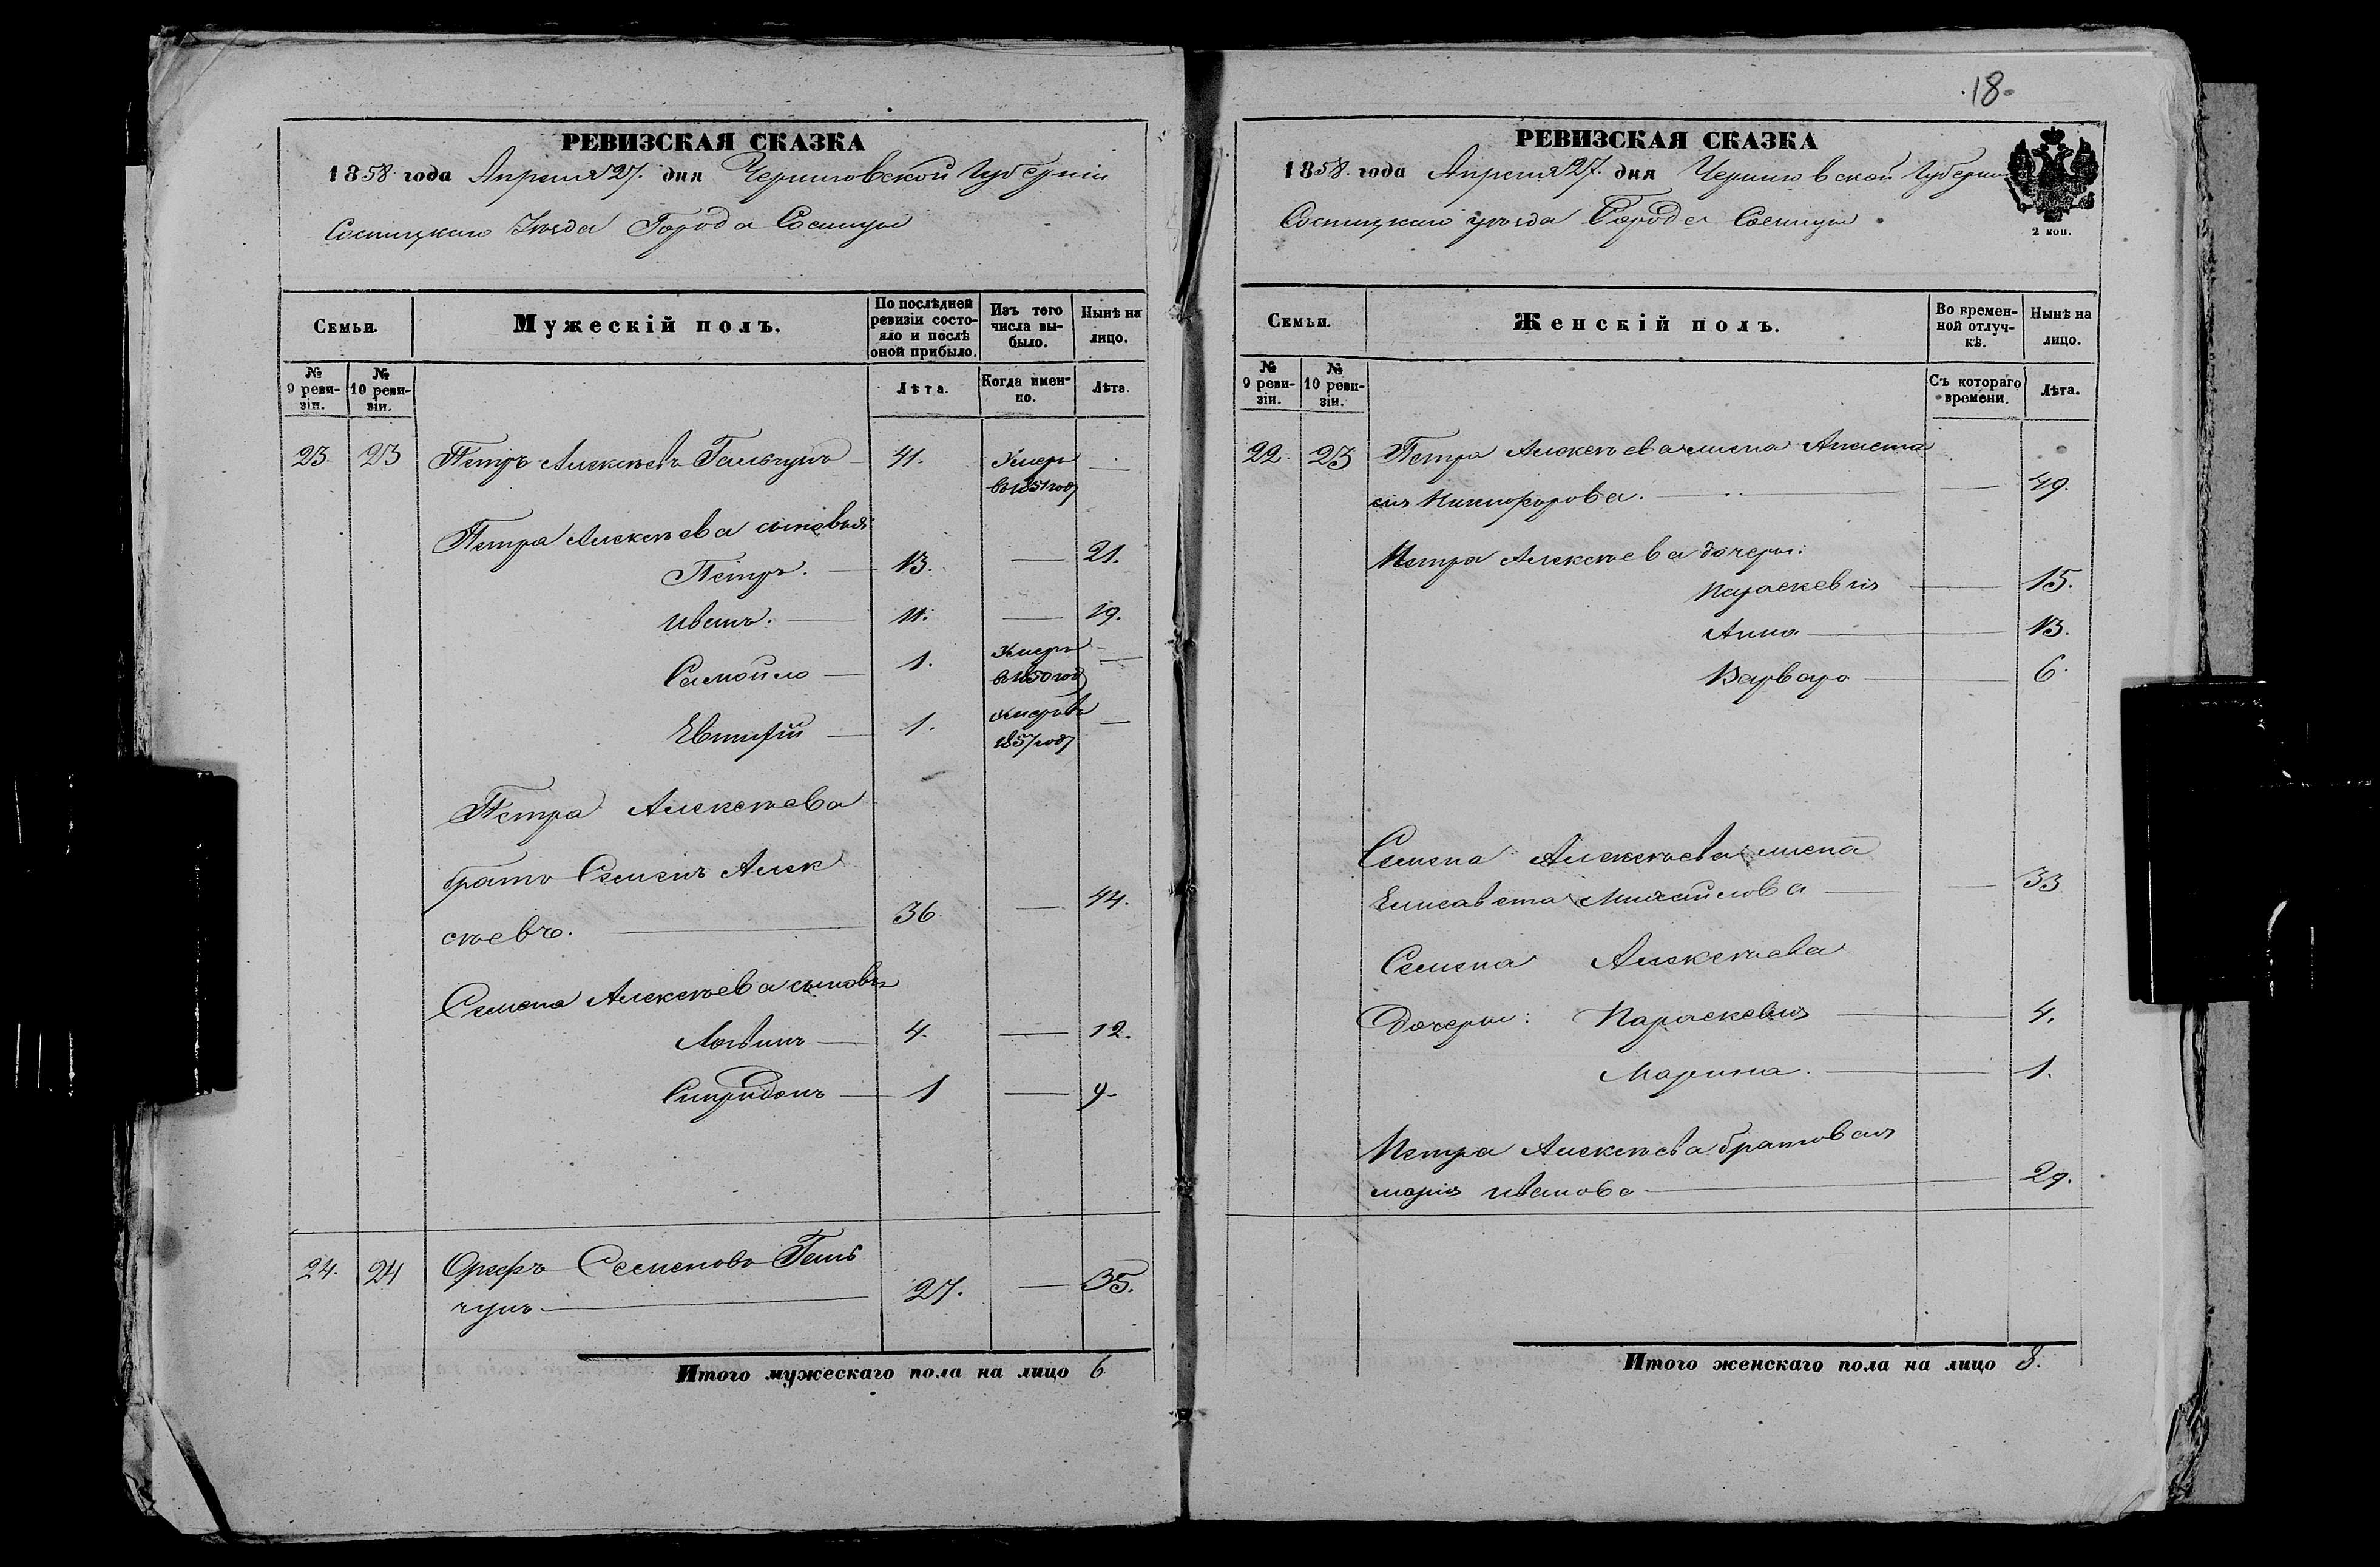 РЕВИЗСКАЯ СКАЗКА
1858 года Апреля 27. дня Черниговской Губерніи
Сосницкаго Уѣзда Города Сосницы
Семьи. Мужескій полъ. По послѣдней ревизіи состояло и послѣ оной прибыло. Изъ того числа выбыло. Нынѣ на лицо.
№ 9 ревизіи. № 10 ревизіи. Лѣта. Когда именно. Лѣта.
23. 23 Петръ Алексѣевъ Гальчунъ 41. Умеръ —
въ 1851 году
Петра Алексѣева сыновья
Петръ. 13. — 21.
Иванъ. — 11. — 19.
Самойло — 1. Умеръ —
въ 1850 году
Евтифій — 1. Умеръ въ —
1857 году
Петра Алексѣева
братъ Семенъ Алек
сѣевъ. — 36 — 44.
Семена Алексѣева сыновья
Логвинъ — 4. — 12.
Спиридонъ — 1 — 9.
24. 24 Орефъ Семеновъ Галь
чунъ — 27. — 35.
Итого мужескаго пола на лицо 6
18.
РЕВИЗСКАЯ СКАЗКА
1858. года Апреля 27. дня Черниговской Губерніи
Сосницкаго уѣзда Города Сосницы.
2 коп.
Семьи. Женскій полъ. Во временной отлучкѣ. Нынѣ на лицо.
№ 9 ревизіи. № 10 ревизіи. Съ котораго времени. Лѣта.
22. 23 Петра Алексѣева жена Анаста
сія Никифорова. — — 49.
Петра Алексѣева дочери:
Параскевія — 15.
Анна — 13.
Варвара — 6.
Семена Алексѣева жена
Елисавета Михайлова — — 33
Семена Алексѣева
Дочери: Параскевія — 4.
Марина. — 1.
Петра Алексѣева братовая
марія иванова — 29.
Итого женскаго пола на лицо 8.